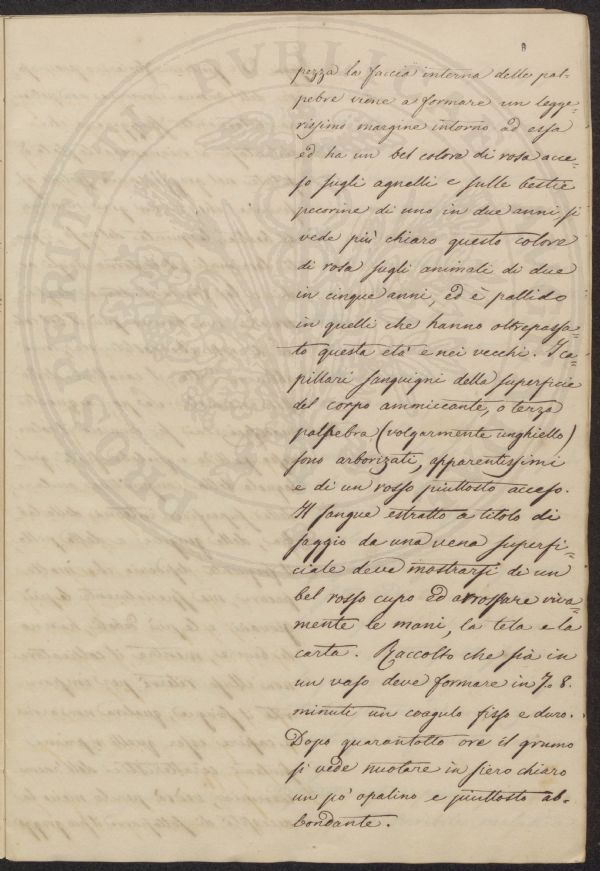 8
pezza la faccia interna delle pal-
pebre viene a formare un legge-
rissimo margine intorno ad essa
ed ha un bel colore di rosa acce-
so sugli agnelli e sulle bestie
pecorine di uno in due anni, si
vede più chiaro questo colore
di rosa sugli animali di due
in cinque anni, ed è pallido
in quelli che hanno oltrepassa-
to questa età e nei vecchi. I ca-
pillari sanguigni della superficie
del corpo ammiccante, o terza
palpebra (volgarmente unghietto)
sono arborizati, apparentissimi
e di un rosso piuttosto acceso.
Il sangue estratto a titolo di
saggio da una vena superfi-
ciale deve mostrarsi di un
bel rosso cupo ed arrossare viva-
mente le mani, la tela e la
carta. Raccolto che sia in
un vaso deve formare in 7. o 8.
minuti un coagulo fisso e duro.
Dopo quarantotto ore il grumo
si vede nuotare in siero chiaro
un po' opalino e piuttosto ab-
bondante.
PROSPERITATI PUBLIC